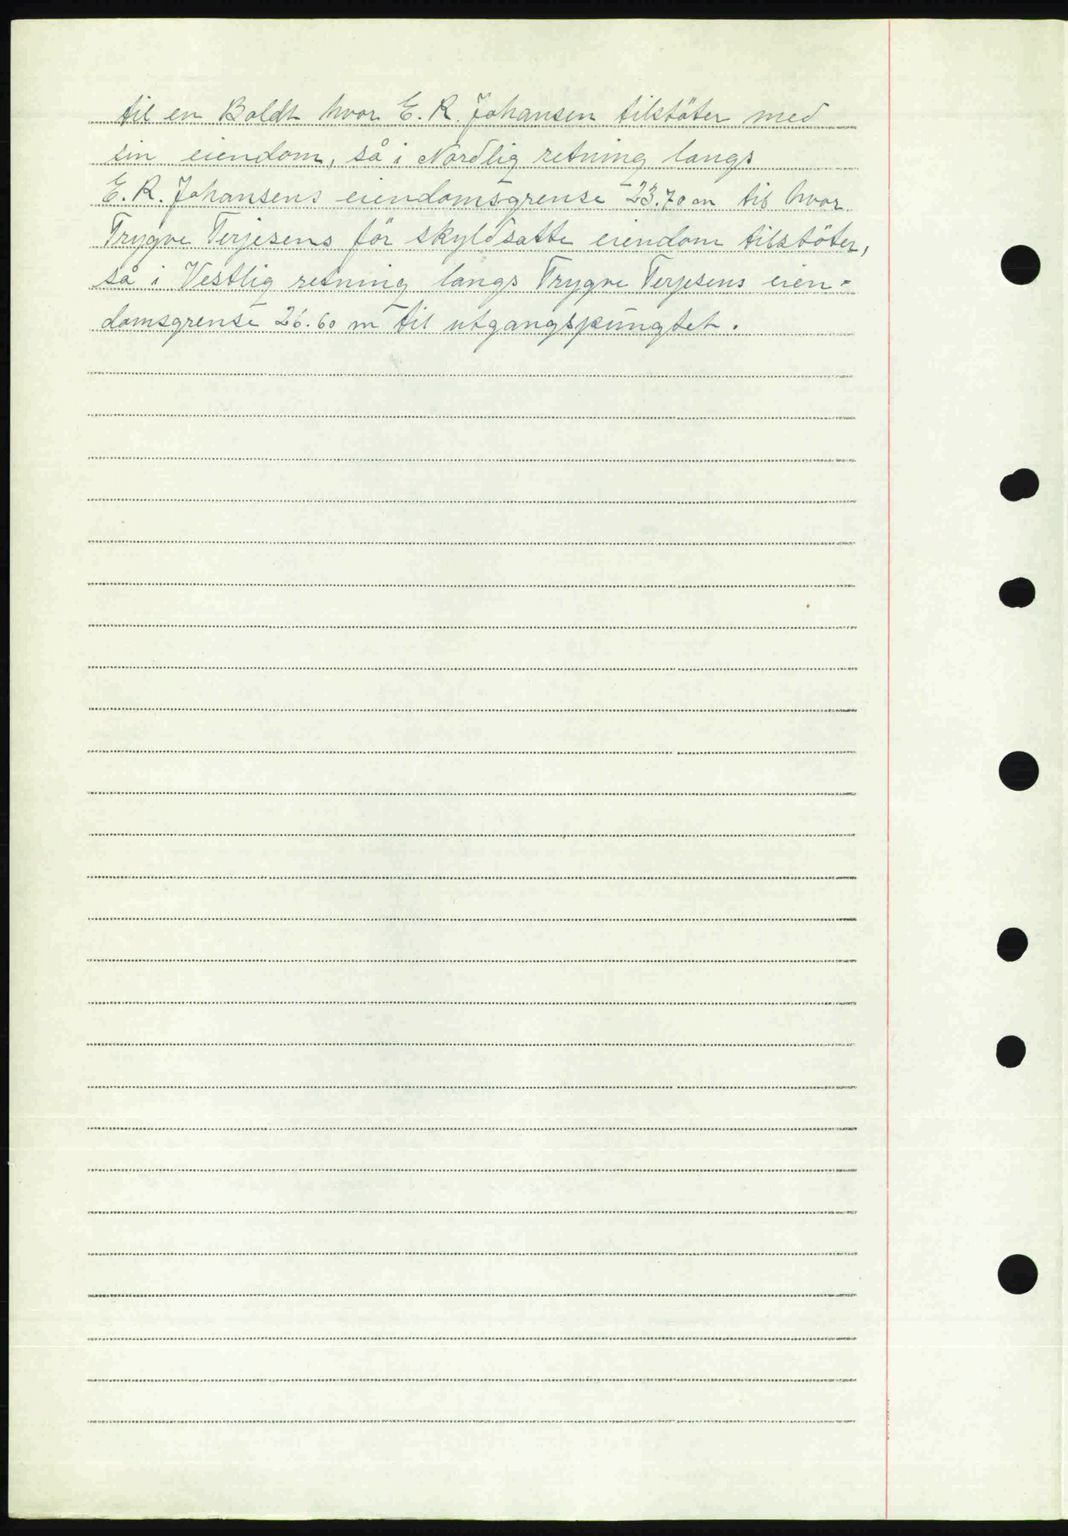 til en Boldt hvor E. R. Johansen tilstöter med
sin eiendom, så i Nordlig retning langs
E. R. Johansens eiendomsgrense 23.70 m til hvor
Trygve Terjesens för skyldsatte eiendom tilstöter,
så i Vestlig retning langs Trygve Terjesens eien-
domsgrense 26.60 m til utgangspungtet.